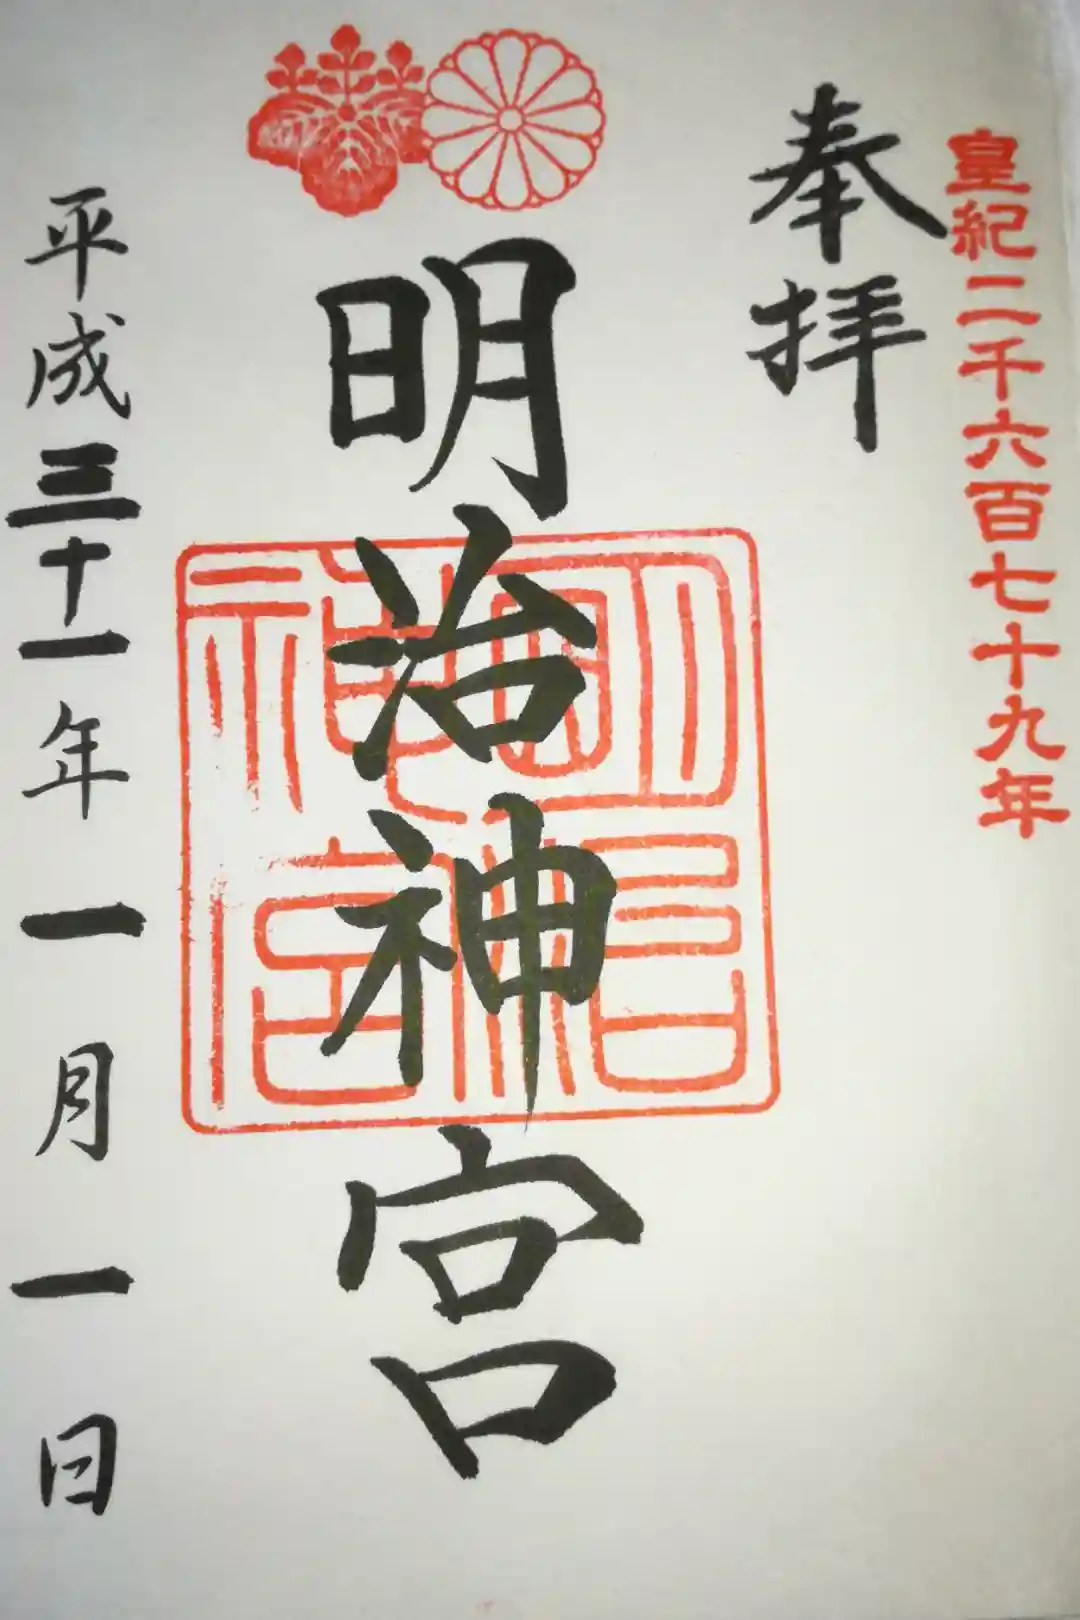 皇紀二千六百七十九年
奉拝
明治神宮
明治神宮
平成三十一年一月一日